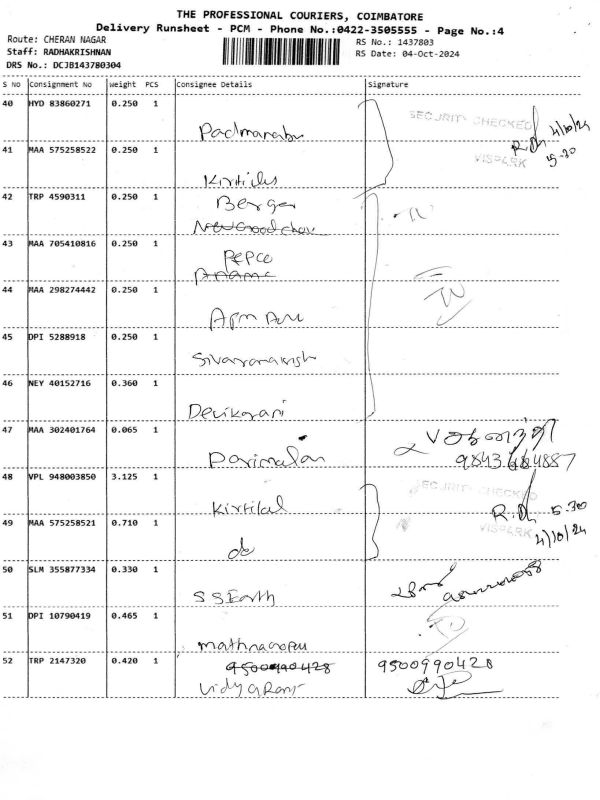 THE PROFESSIONAL COURIERS, COIMBATORE
Delivery Runsheet - PCM - Phone No.:0422-3505555 - Page No.:4
Route: CHERAN NAGAR
RS No.: 1437803
Staff: RADHAKRISHNAN
RS Date: 04-Oct-2024
DRS No.: DCJB143780304
S No Consignment No Weight PCS Consignee Details Signature
40 HYD 83860271 0.250 1
SECURITY CHECKED
4/10/24
Padmanabu
R.Dh
VISPARK
5.30
41 MAA 575258522 0.250 1
Kirtilal
42 TRP 4590311 0.250 1
Berger
43 MAA 705410816 0.250 1
PEPCO
44 MAA 298274442 0.250 1
45 DPI 5288918 0.250 1
46 NEY 40152716 0.360 1
Devikarani
47 MAA 302401764 0.065 1
Parimalan
48 VPL 948003850 3.125 1
SECURITY CHECKED
Kirtilal
R.Dh 5.30
VISPARK
4/10/24
49 MAA 575258521 0.710 1
do
50 SLM 355877334 0.330 1
S S Earth
51 DPI 10790419 0.465 1
52 TRP 2147320 0.420 1
9500990428 9500990428
Vidya Rani